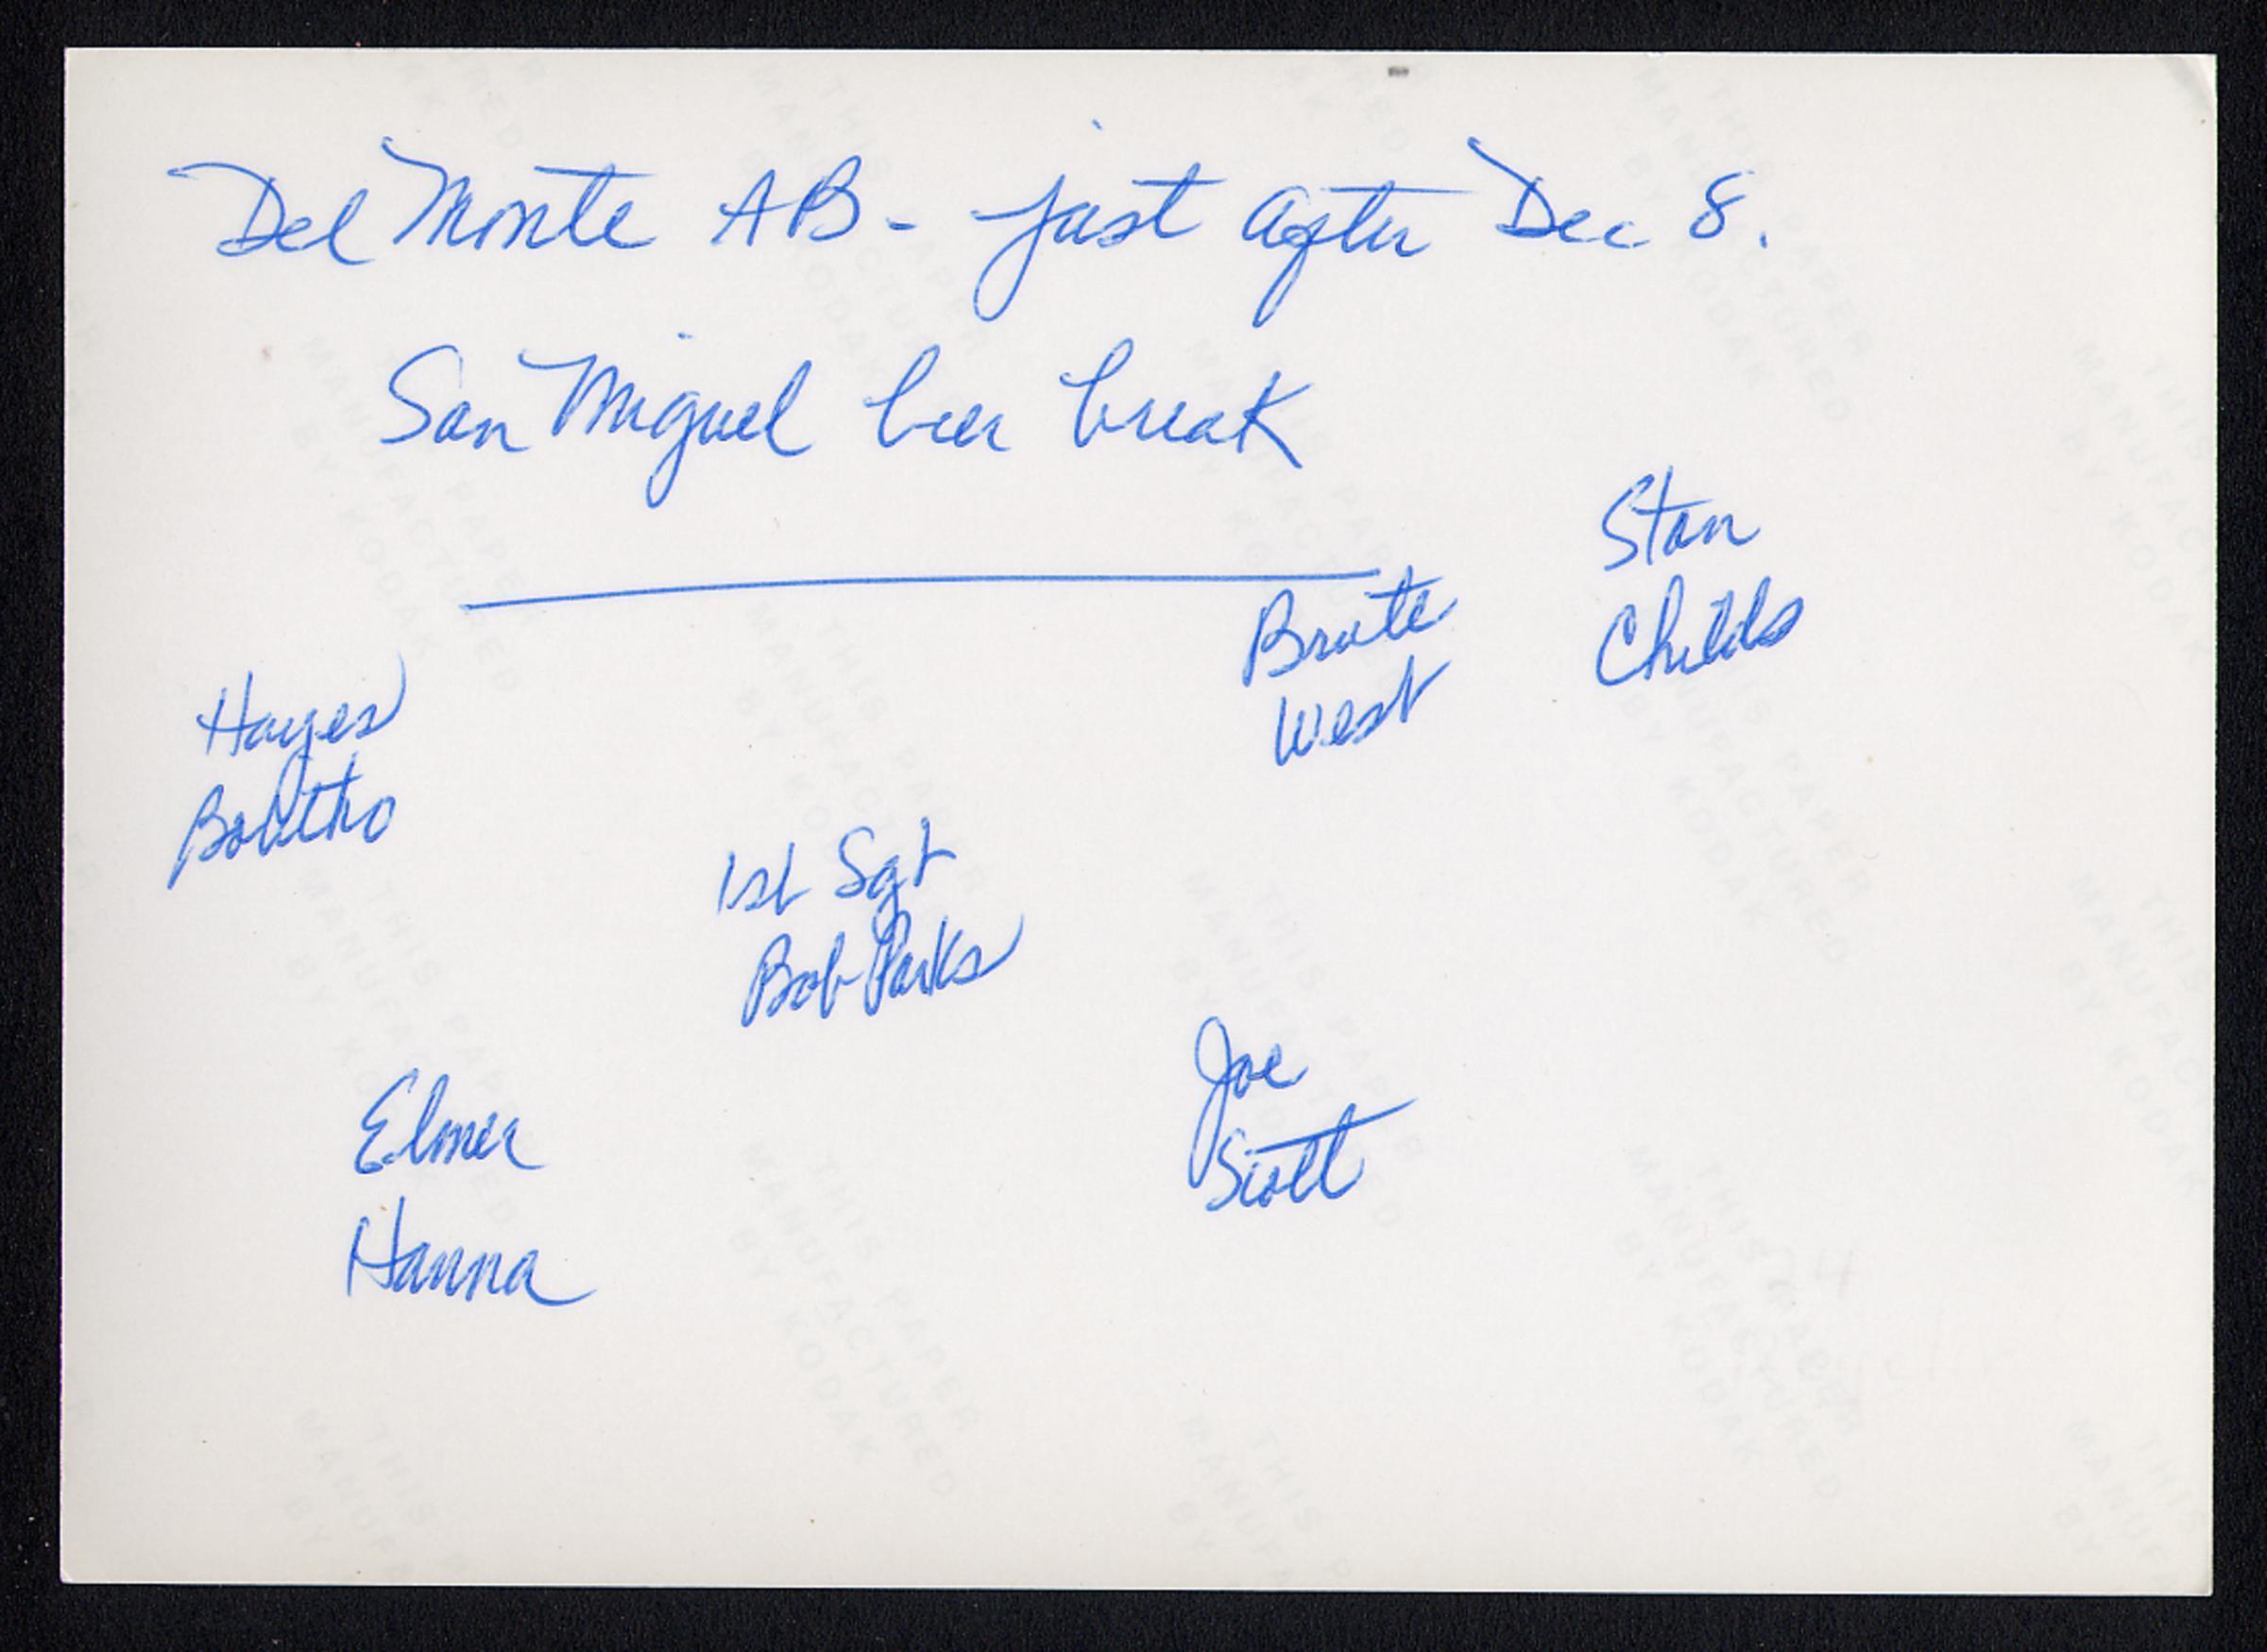 Del Monte AB - just after Dec 8.
San Miguel beer break
Stan
Childs
Brute
West
Hayes
Bolitho
1st Sgt
Bob Parks
Joe
Scott
Elmer
Hanna
THIS PAPER
MANUFACTURED
BY KODAK